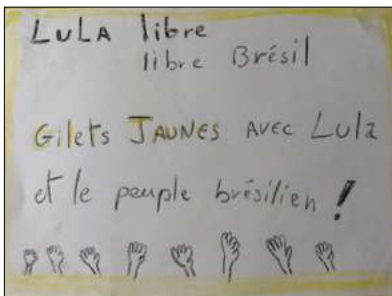 LULA libre
libre Brésil
Gilets JAUNES AVEC Lula
et le peuple brésilien !